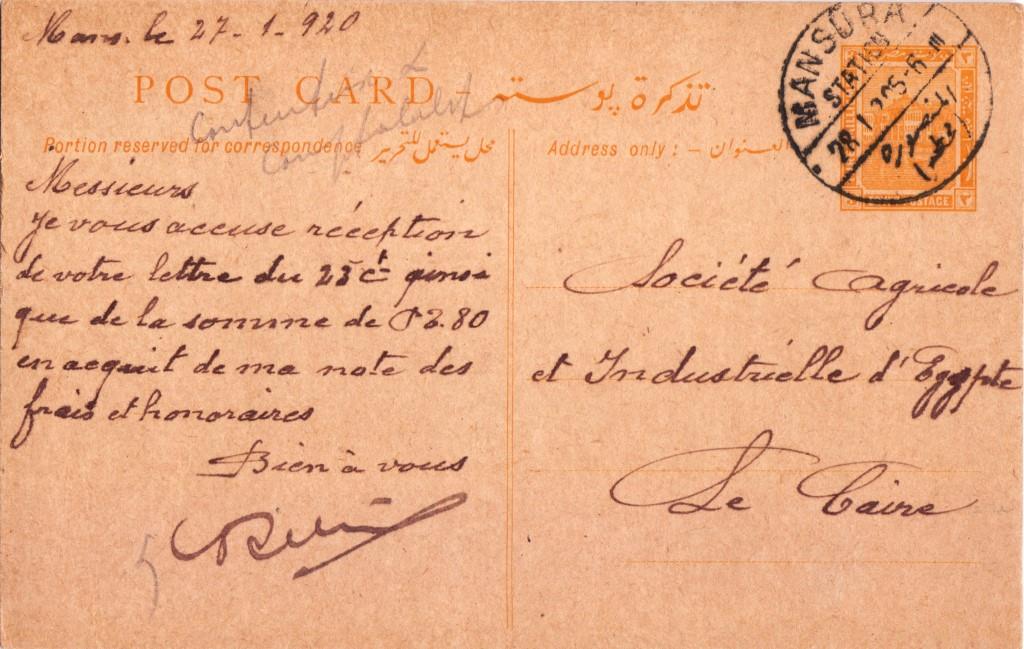 Mans. le 27-1-920
POST CARD — تذكرة پوستـه
Portion reserved for correspondence محل يستعمل للتحرير
Messieurs
Je vous accuse réception
de votre lettre du 23 ct ainsi
que de la somme de PT. 80
en acquit de ma note des
frais et honoraires
Bien à vous
Address only : — العنوان
MANSURA
STATION
28. I 205-6
المنصورة
POSTAGE
Société Agricole
et Industrielle d'Egypte
Le Caire